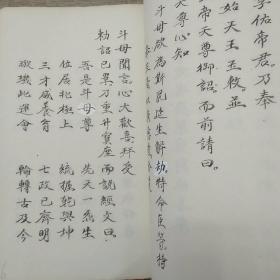 孚佑帝君。乃奉
始天王玉敕。並
帝天尊御詔。而前請曰。
天尊心知
斗母欲為群民延生解劫特命臣等特
斗母聞言心大歡喜拜受
勅詔已畢乃重升寶座而說經文曰。
吾是斗母尊 先天一炁生
位居北極上 統握乾與坤
三才咸養育 七政已齊明
璇璣此運會 輪轉古及今